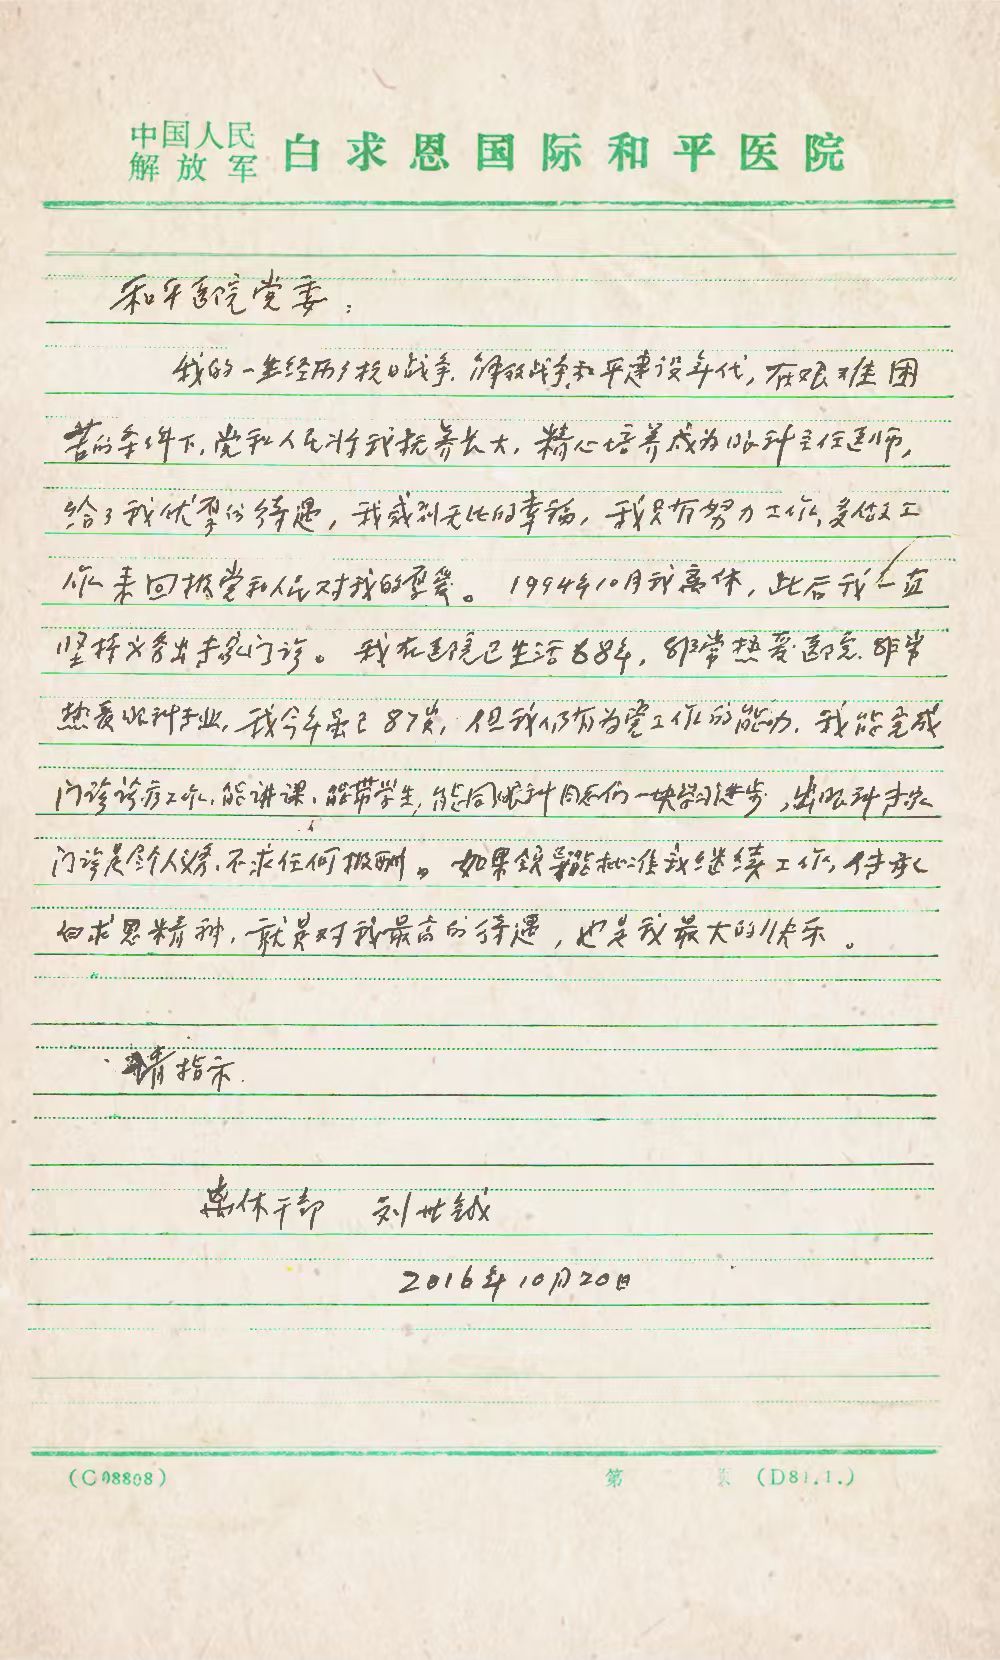 中国人民
解放军 白求恩国际和平医院
和平医院党委：
我的一生经历了抗日战争、解放战争和平建设年代，在艰难困
苦的条件下，党和人民将我抚养长大，精心培养成为眼科主任医师，
给了我优厚的待遇，我感到无比的幸福，我只有努力工作，多做工
作来回报党和人民对我的厚爱。1994年10月我离休，此后我一直
坚持义务出专家门诊。我在医院已生活68年，非常热爱医院，非常
热爱眼科专业，我今年虽已87岁，但我仍有为党工作的能力，我能完成
门诊诊疗工作，能讲课，能带学生，能同眼科同志们一块学习进步，出眼科专家
门诊是尽个人义务，不求任何报酬。如果领导能批准我继续工作，传承
白求恩精神，就是对我最高的待遇，也是我最大的快乐。
请指示.
离休干部 刘世铖
2016年10月20日
(C08808) 第 页 (D81.1.)